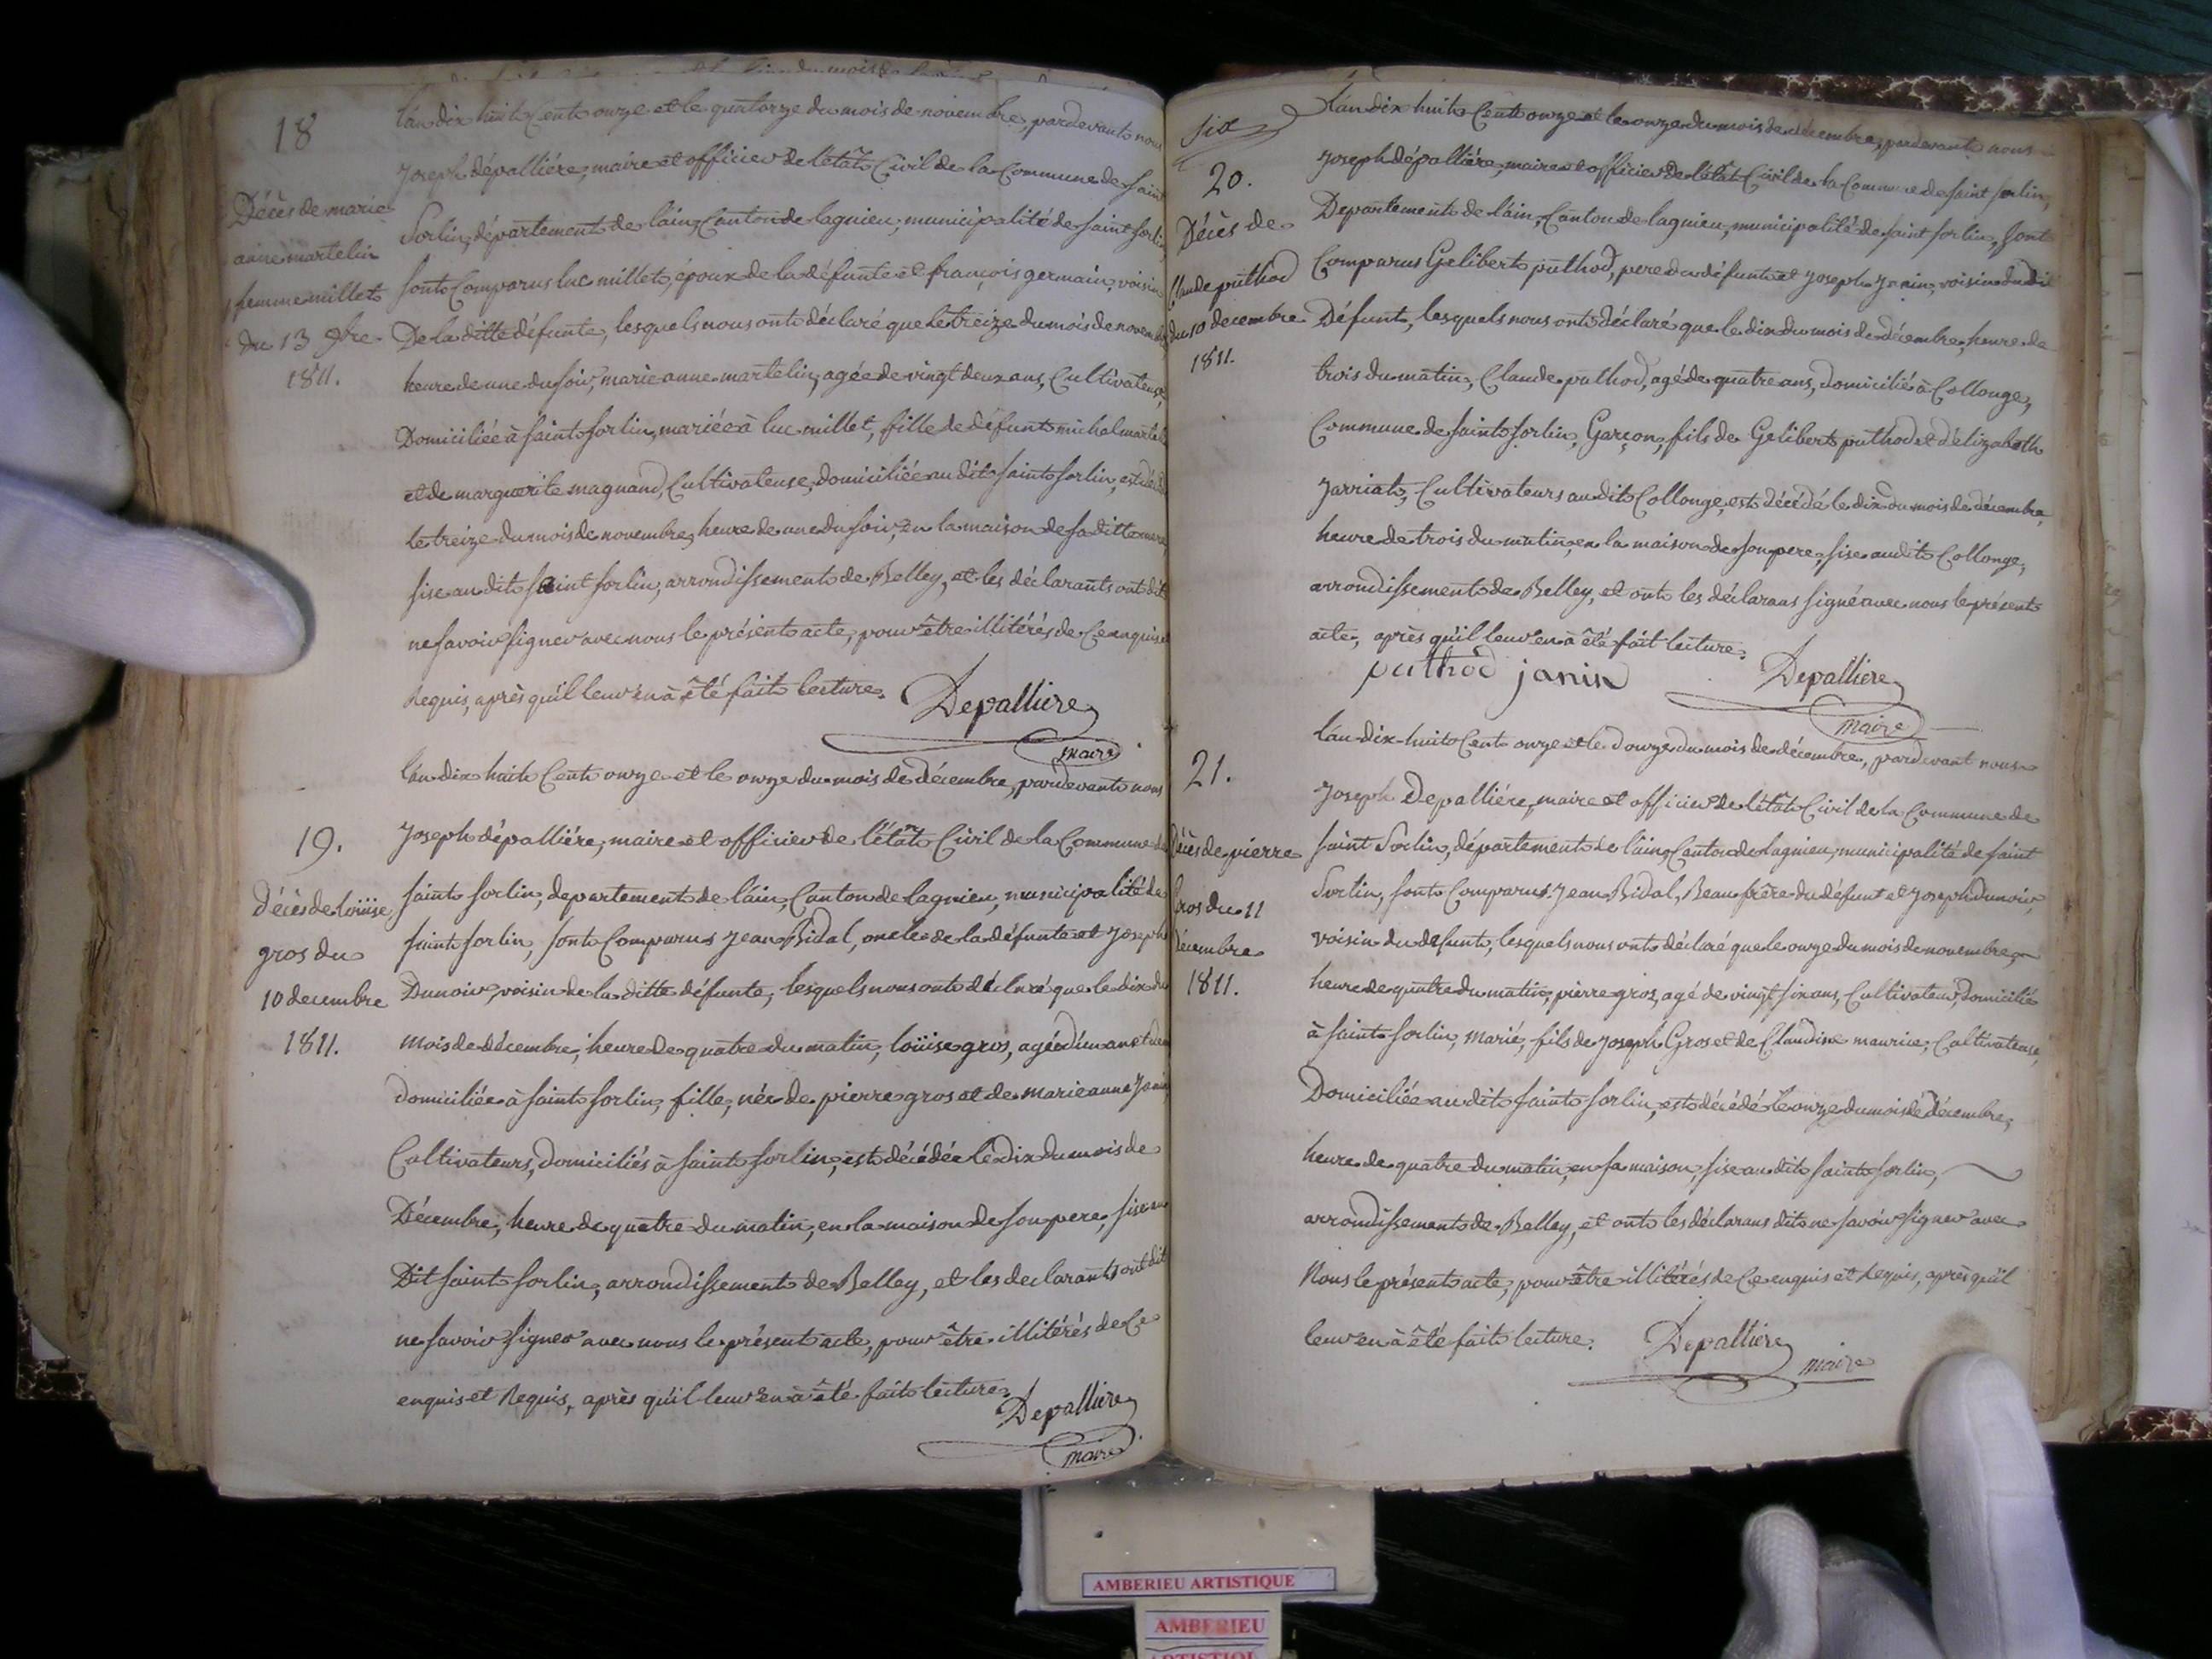 18
Décès de marie
anne martelin
femme millet
du 13 9bre
1811.
L'an dix huit cent onze et le quatorze du mois de novembre, pardevant nous
Joseph dépalliére, maire et officier de l'état Civil de la Commune de Saint
Sorlin, département de l'ain, Canton de lagnieu, municipalité de saint sorlin
sont Comparus luc millet, époux de la défunte et françois germain, voisin
De la ditte défunte, lesquels nous ont déclaré que le treize du mois de novembre
heure de une du soir, marie anne martelin, agée de vingt deux ans, Cultivateuse,
Domiciliée à saint sorlin, mariée à luc millet, fille de défunt michel martelin
et de marguerite magnand, Cultivateuse, domiciliée au dit saint sorlin, est décédée
le treize du mois de novembre, heure de une du soir, en la maison de sa ditte mere,
sise au dit saint sorlin, arrondissement de Belley, et les déclarants ont dit
ne savoir signer avec nous le présent acte, pour être illitérés de Ce enquis et
Requis, après qu'il leur en à été fait lecture.
Depalliere
maire
19.
Décès de Loüise
gros du
10 decembre
1811.
L'an dix huit Cent onze et le onze du mois de décembre, pardevant nous
Joseph dépalliére, maire et officier de l'état Civil de la Commune de
saint sorlin, departement de l'ain, Canton de lagnieu, municipalité de
saint sorlin, sont Comparus Jean Bidal, oncle de la défunte et Joseph
Dunoir, voisin de la ditte défunte, lesquels nous ont déclaré que le dix du
mois de décembre, heure de quatre du matin, loüise gros, agée d'un an et
domiciliée à saint sorlin, fille, née de pierre gros et de marie anne Janin
Cultivateurs, domiciliés à saint sorlin, est décédée le dix du mois de
Décembre, heure de quatre du matin, en la maison de son pere, sise au
Dit saint sorlin, arrondissement de Belley, et les declarants ont dit
ne savoir signer avec nous le présent acte, pour être illitérés de Ce
enquis et Requis, après qu'il leur en à été fait lecture.
Depalliere
maire
six
20.
Décès de
Claude puthod
du 10 decembre
1811.
L'an dix huit Cent onze et le onze du mois de décembre, pardevant nous
Joseph dépalliére, maire et officier de l'état Civil de la Commune de saint sorlin,
Departement de l'ain, Canton de lagnieu, municipalité de saint sorlin, sont
Comparus Gelibert puthod, pere du défunt et Joseph Janin, voisin du dit
Défunt, lesquels nous ont déclaré que le dix du mois de décembre, heure de
trois du matin, Claude puthod, agé de quatre ans, domicilié à Collonge,
Commune de saint sorlin, Garçon, fils de Gelibert puthod et d'élizabeth
Jarriat, Cultivateurs au dit Collonge, est décédé le dix du mois de décembre,
heure de trois du matin, en la maison de son pere, sise au dit Collonge,
arrondissement de Belley, et ont les déclarans signé avec nous le présent
acte, après qu'il leur en à été fait lecture.
puthod janin
Depalliere
maire
21.
Décès de pierre
Gros du 11
décembre
1811.
L'an dix-huit Cent onze et le douze du mois de décembre, pardevant nous
Joseph Depalliére, maire et officier de l'état Civil de la Commune de
saint Sorlin, département de l'ain, Canton de lagnieu, municipalité de saint
Sorlin, sont Comparus Jean Bidal, Beau frère du défunt et Joseph dunoir,
voisin du defunt, lesquels nous ont déclaré que le onze du mois de novembre,
heure de quatre du matin, pierre gros, agé de vingt six ans, Cultivateur, domicilié
à saint sorlin, marié, fils de Joseph Gros et de Claudine maurice, Cultivateuse,
Domiciliée au dit saint sorlin, est décédé le onze du mois de décembre,
heure de quatre du matin, en sa maison, sise au dit saint sorlin,
arrondissement de Belley, et ont les déclarans dit ne savoir signer avec
Nous le présent acte, pour être illitérés de Ce enquis et Requis, après qu'il
leur en à été fait lecture.
Depalliere
maire
AMBERIEU ARTISTIQUE
AMBERIEU
ARTISTIQUE